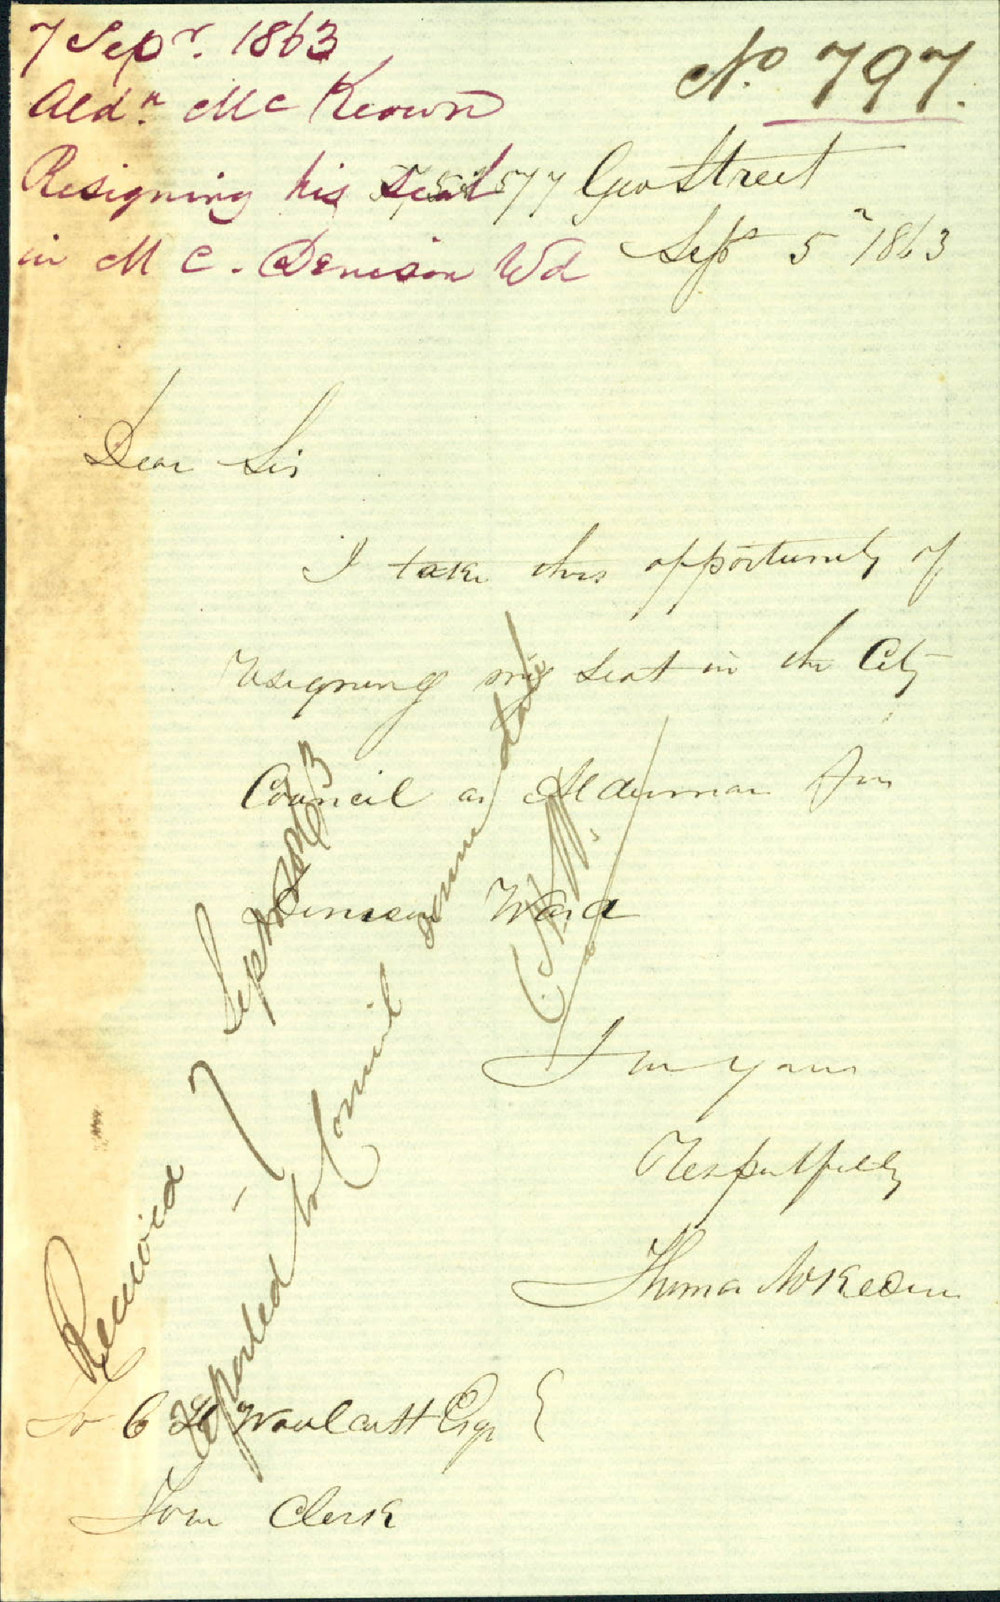 7 Sepr. 1863
Aldn. Mc Keown
Resigning his seat
in M C. Denison Wd
No 797.
577 Geo Street
Sept 5th 1863
Dear Sir
I take this opportunity of
resigning my seat in the City
Council as Alderman for
Denison Ward
I am yours
Respectfully
Thomas McKeown
To C H Woolcott Esqr
Town Clerk
Received 7 Septr 1863
Reported to Council same date
C.H.W.